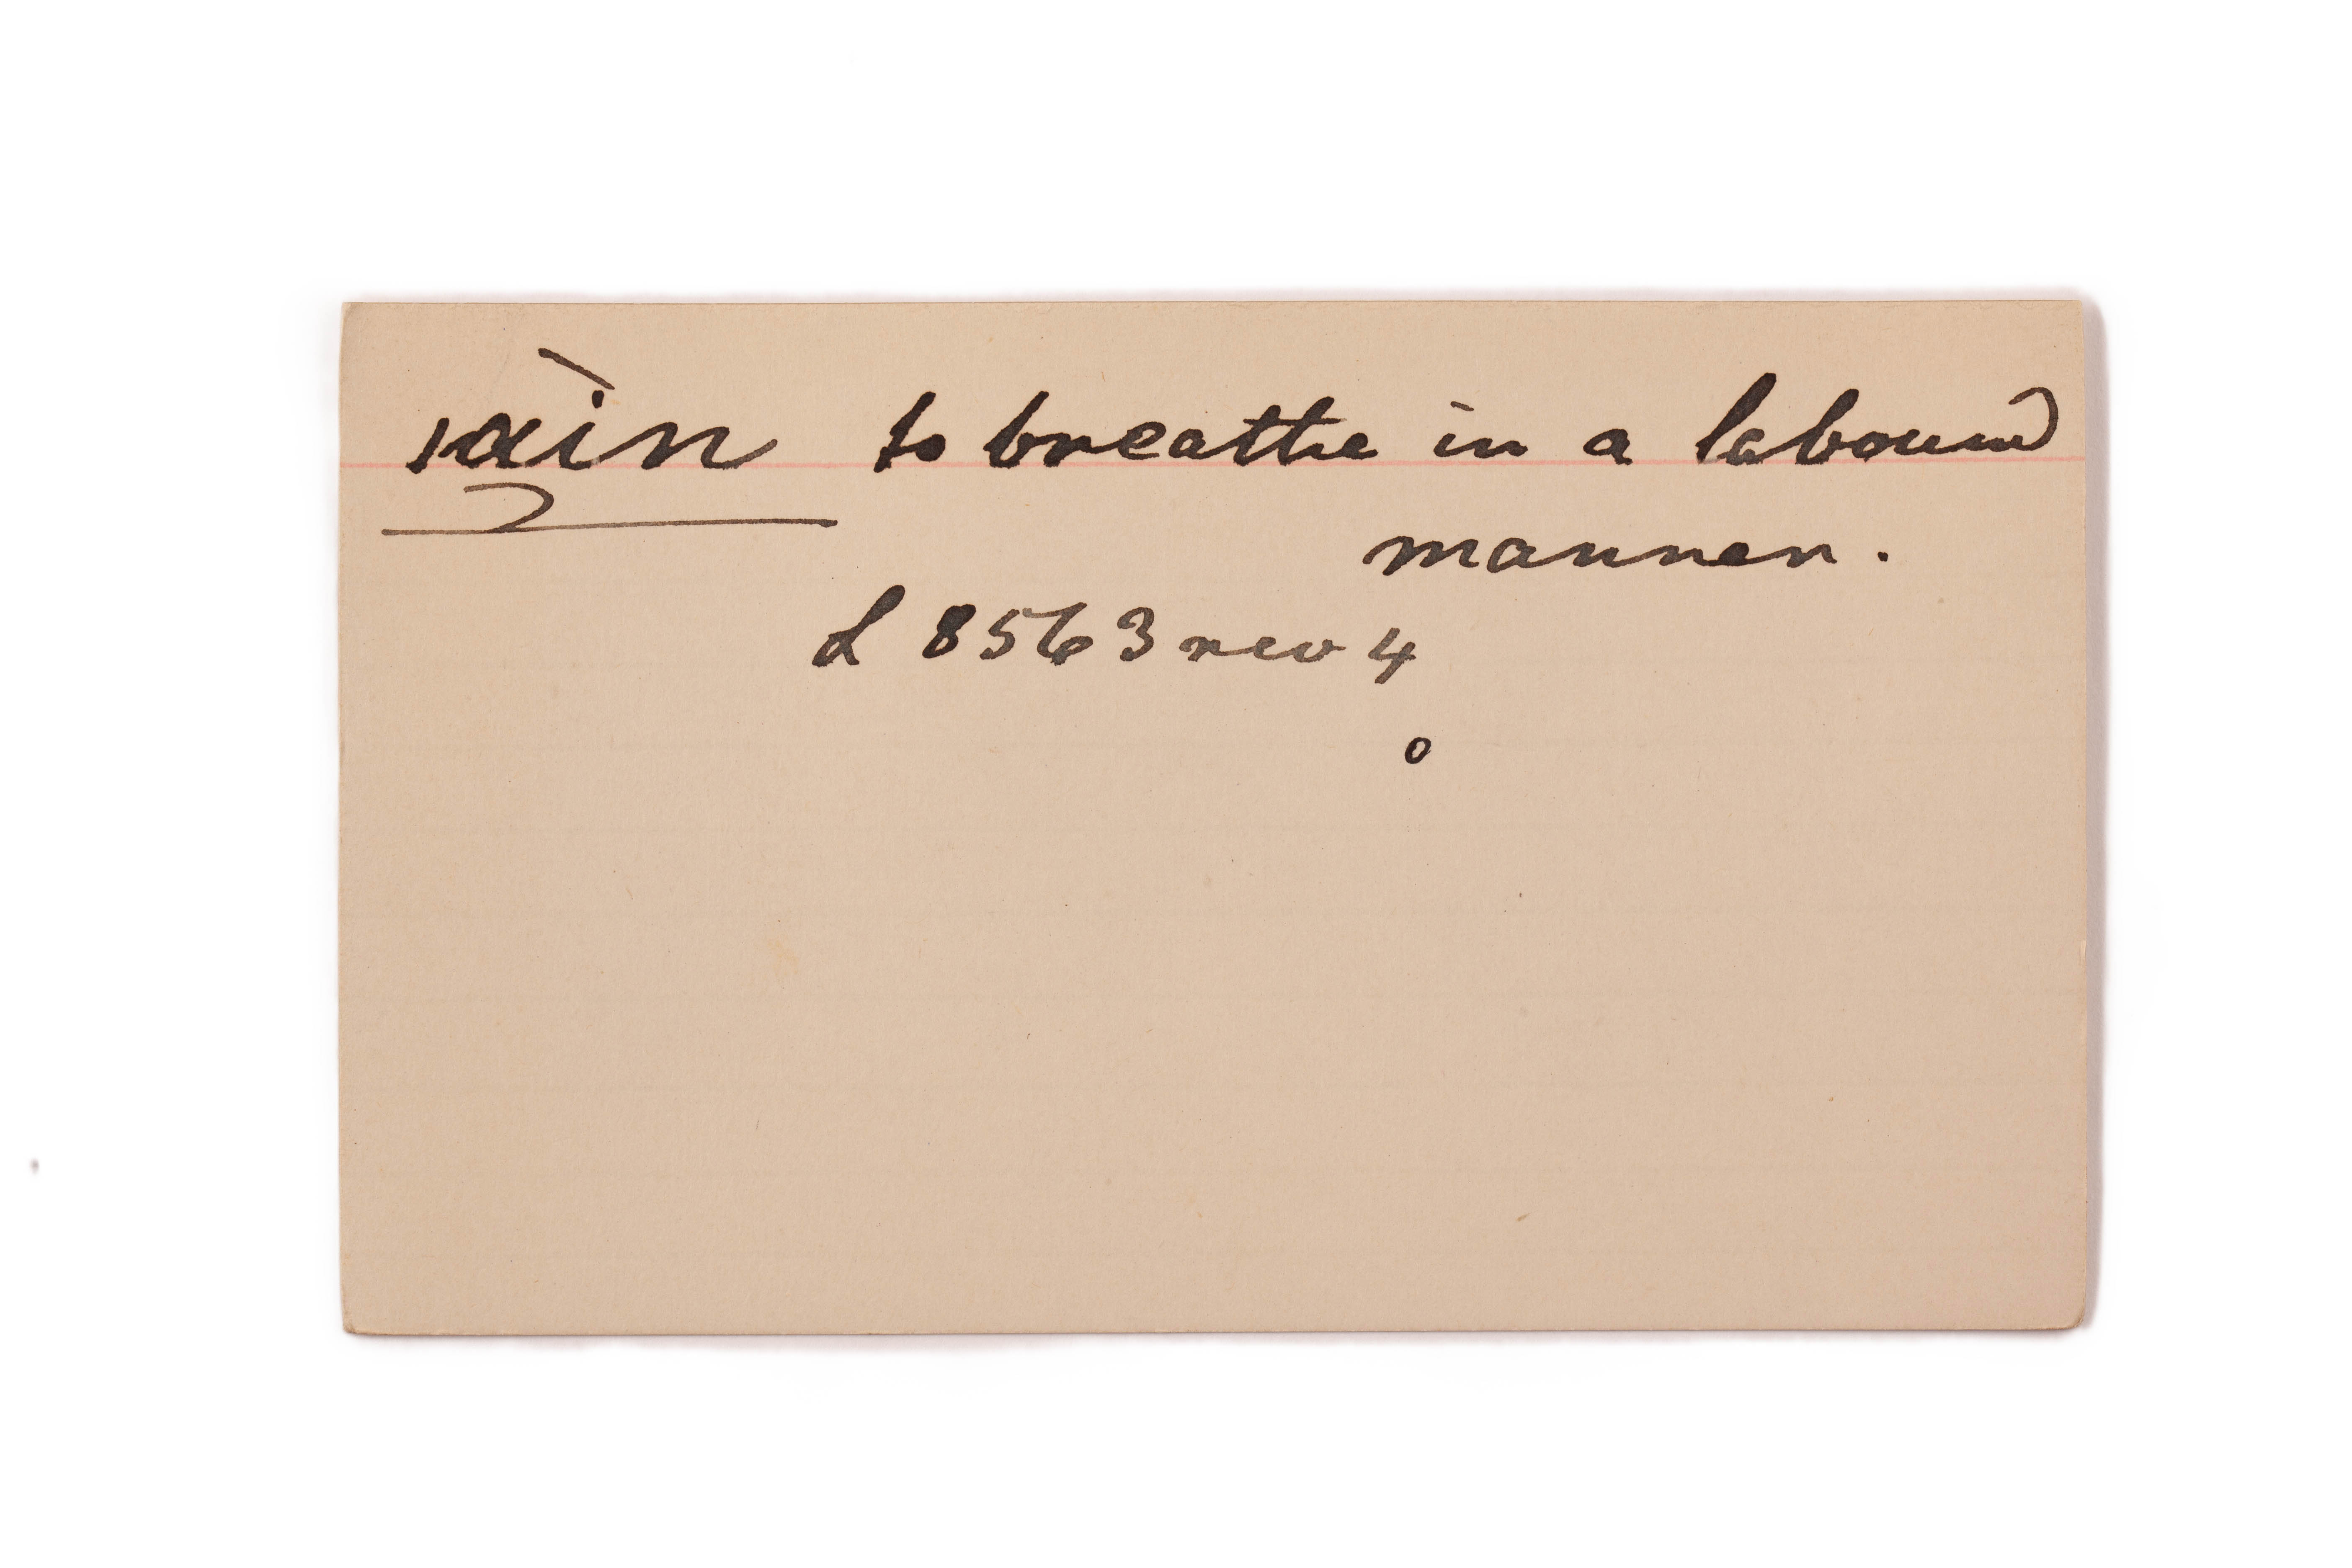 ıxı̀n to breathe in a laboured
manner.
L 8563 rev 4
o